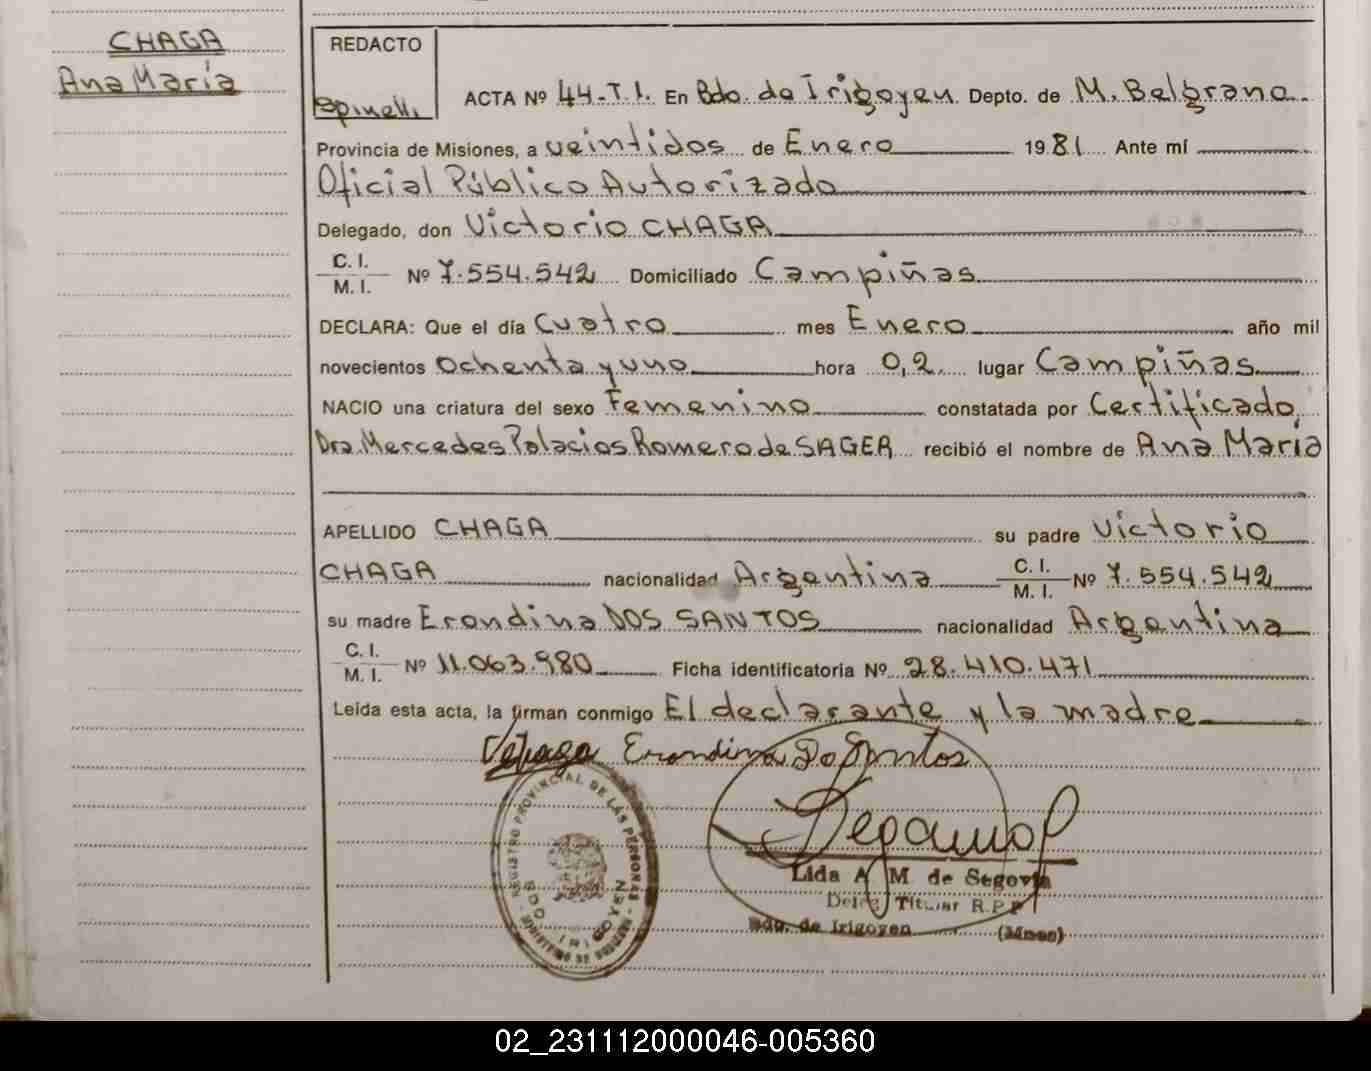 CHAGA
Ana María
REDACTO
Spinelli
ACTA Nº 44-T.I. En Bdo. de Irigoyen. Depto. de M. Belgrano
Provincia de Misiones, a veintidos de Enero 1981 Ante mí
Oficial Público Autorizado
Delegado, don Victorio CHAGA
C. I.
M. I. Nº 7.554.542 Domiciliado Campiñas
DECLARA: Que el día Cuatro mes Enero año mil
novecientos Ochenta y uno hora 0,2. lugar Campiñas
NACIO una criatura del sexo Femenino constatada por Certificado
Dra. Mercedes Palacios Romero de SAGER recibió el nombre de Ana María
APELLIDO CHAGA su padre Victorio
CHAGA nacionalidad Argentina C. I. M. I. Nº 7.554.542
su madre Erondina DOS SANTOS nacionalidad Argentina
C. I.
M. I. Nº 11.063.980 Ficha identificatoria Nº 28.410.471
Leída esta acta, la firman conmigo El declarante y la madre
Erondina Do Santos
REGISTRO PROVINCIAL DE LAS PERSONAS
BDO. IRIGOYEN
Lida A M de Segovia
Deleg Titular R.P.P
Bdo. de Irigoyen (Mnes)
02_231112000046-005360